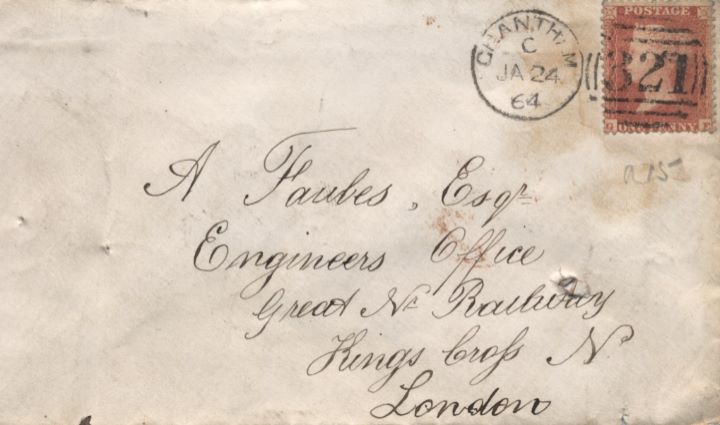 GRANTHAM
C
JA 24
64
POSTAGE
321
ONE PENNY
R15
A Faubes, Esqr
Engineers Office
Great Nn Railway
Kings Cross N.
London